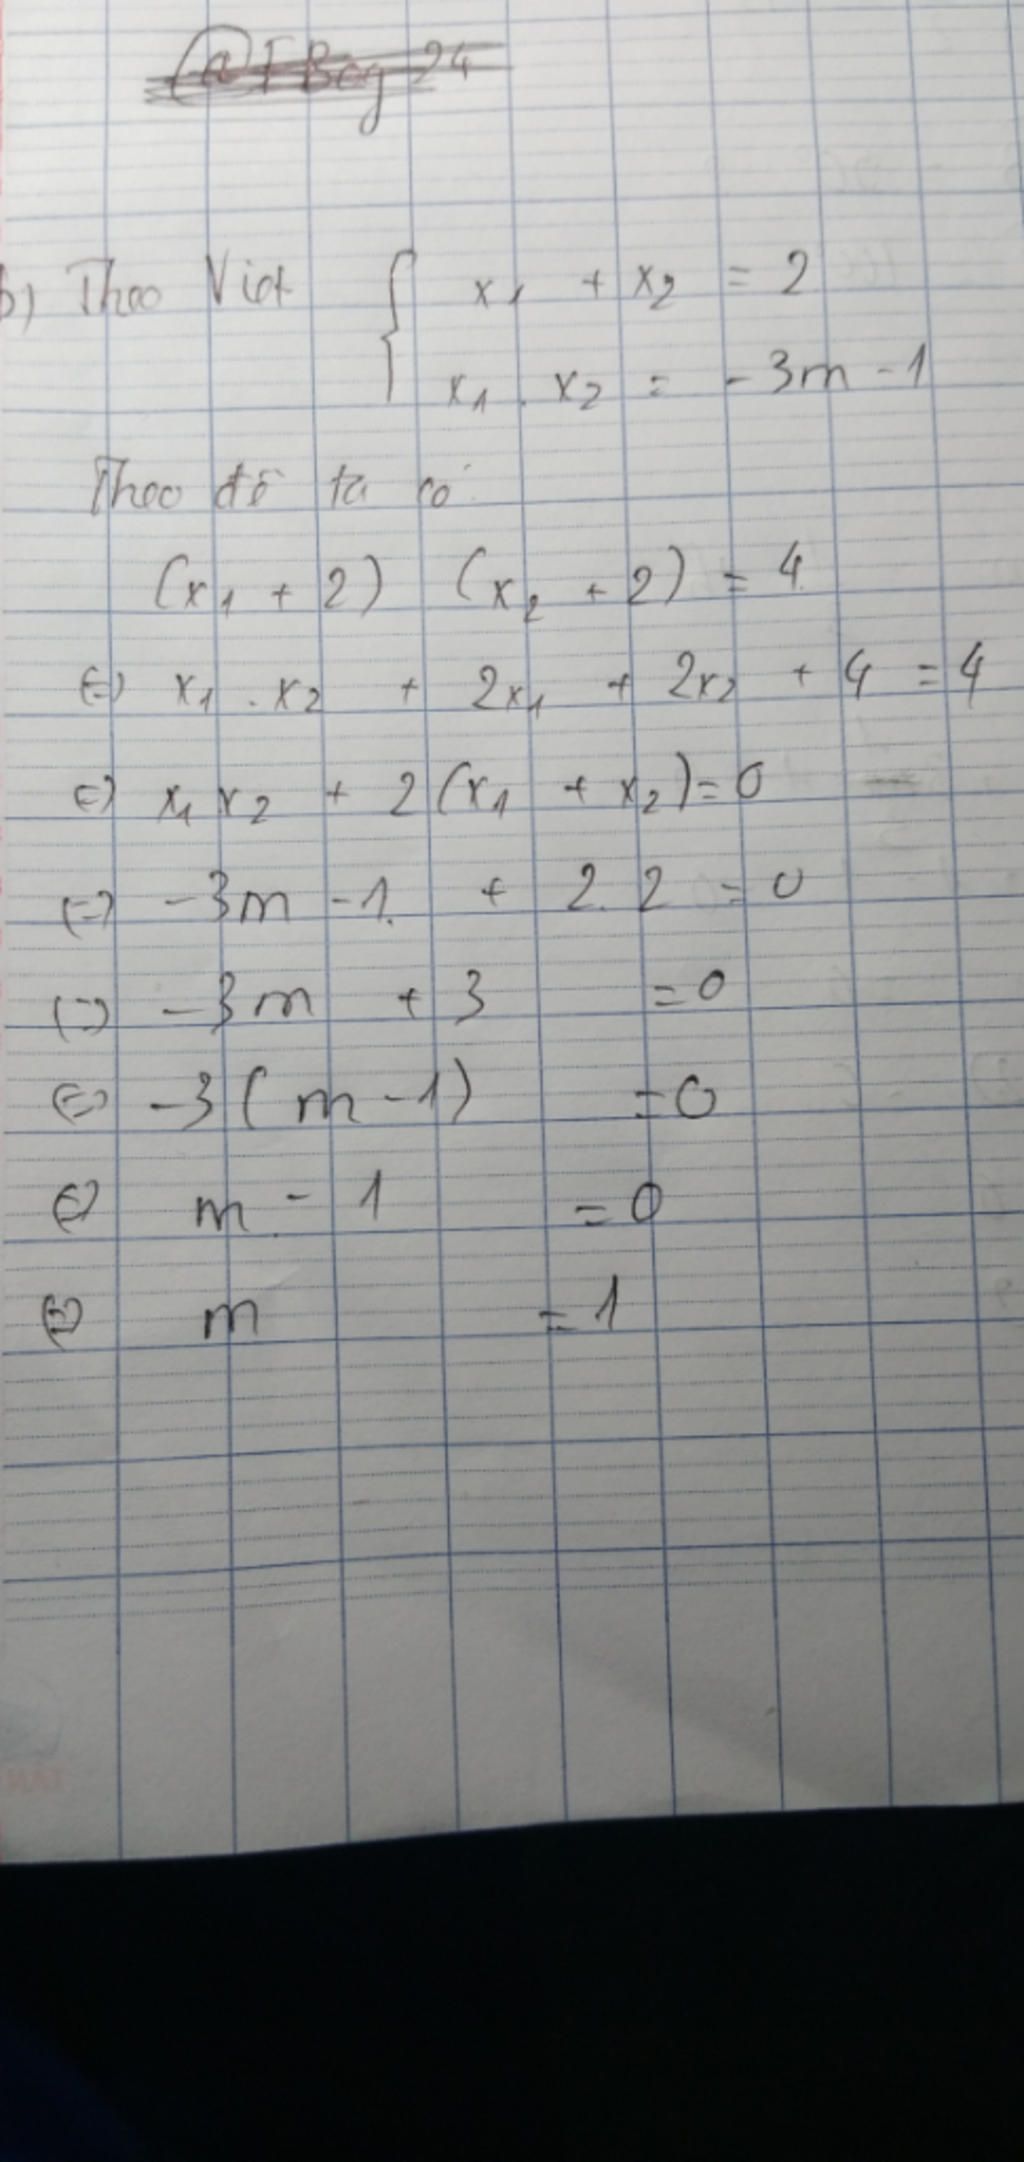 b) Theo Viet { x1 + x2 = 2
x1 . x2 = -3m - 1
Theo đề ta có
(x1 + 2) (x2 + 2) = 4
(=) x1 . x2 + 2x1 + 2x2 + 4 = 4
(=) x1 x2 + 2(x1 + x2) = 0
(=) -3m - 1 + 2.2 = 0
(=) -3m + 3 = 0
(=) -3(m - 1) = 0
(=) m - 1 = 0
(=) m = 1